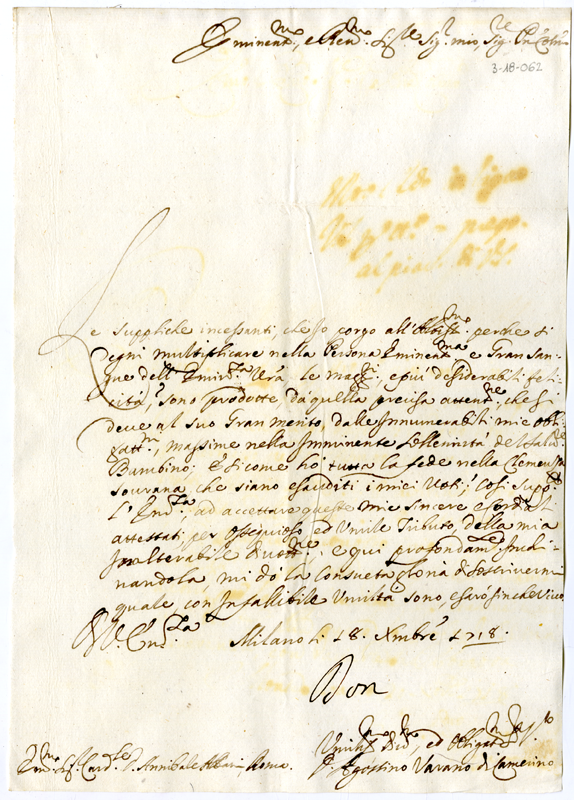 Eminent.mo, e Rev.mo Sig.re Sig.r mio Sig.re Pn Col.mo
3-18-062
Le suppliche incessanti, che Io porgo all'Altiss.mo perche si
degni multiplicare nella Persona Eminent.ma e Gran San-
gue dell'Emin.za V'ra le magg.ri, e più desiderabili feli-
cità, sono prodotte, da quella precisa attent.ne, che si
deve al suo Gran merito, dalle Innumerabili mie obli-
gatt.ni, massime nella Imminente Sollennità del S.
Bambino; E si come hò tutta la fede nella Clemenza
sourana che siano esauditi i miei Voti; Cosi Supp.co
l'Em.za ad accettare queste mie sincere e cordiali
attestati, per ossequioso, ed Umile Tributo della mia
Inalterabile diuott.ne, e qui profondam.te Inchi-
nandola, mi dò la consueta gloria di sottoscriuermi
quale con Infallibile Umiltà sono, e sarò sinche Viuo
Di V. Em.za Milano li 18. Xmbre 1718.
Umiliss.mo Div.mo, ed Obligat.mo
D. Agostino Varano di Camerino
Em.mo Sig. Card.le D. Annibale Albani Roma.